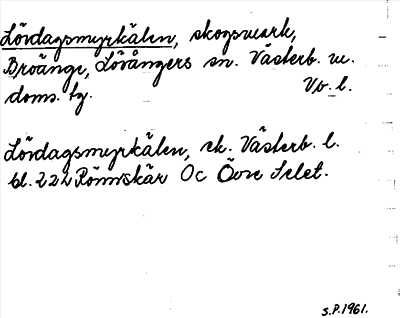 Lördagsmyrkälen, skogsmark,
Broänge, Lövångers sn. Västerb. m.
doms. tg. Vb. l.
Lördagsmyrkälen, ek. Västerb. l.
bl. 222 Rönnskär Oc Övre Selet.
S.P. 1961.